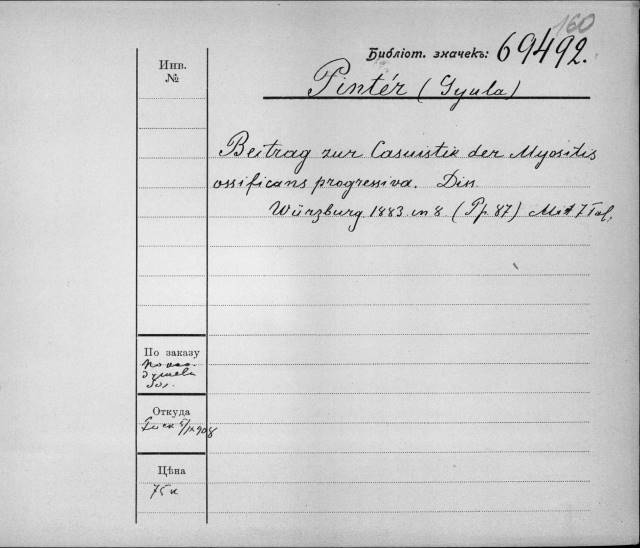 160
Библіот. значекъ: 69492.
Инв.
№
Pintér (Gyula)
Beitrag zur Casuistik der Myositis
ossificans progressiva. Diss.
Würzburg 1883 in 8 (Pp. 87) Mit 7 Taf.
По заказу
Откуда
Цѣна
75 к